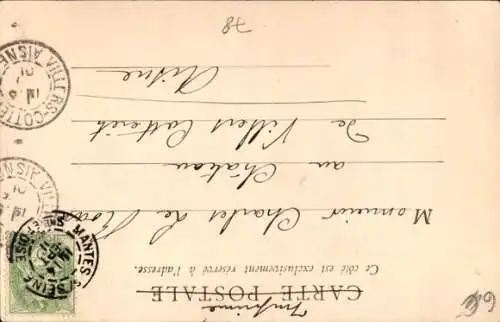 Imprimé
CARTE POSTALE
Ce côté est exclusivement réservé à l'adresse.
Monsieur Charles de
au Château
de Villers Cotterêt
Aisne
MANTES S. SEINE
SNE ET OISE
VILLERS-COTTE AISNE
VILLERS-COTTE AISNE
78